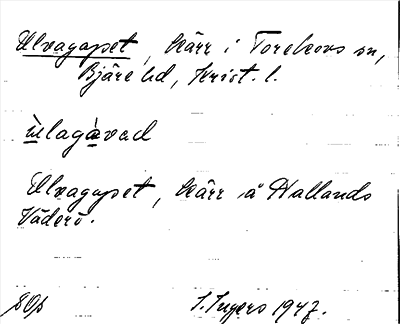 Ulvagapet, Kärr i Torekovs sn,
Bjäre hd, Krist. l.
ùlagàvad
Ulvagapet, Kärr å Hallands
Väderö.
SOp I. Ingers 1947.